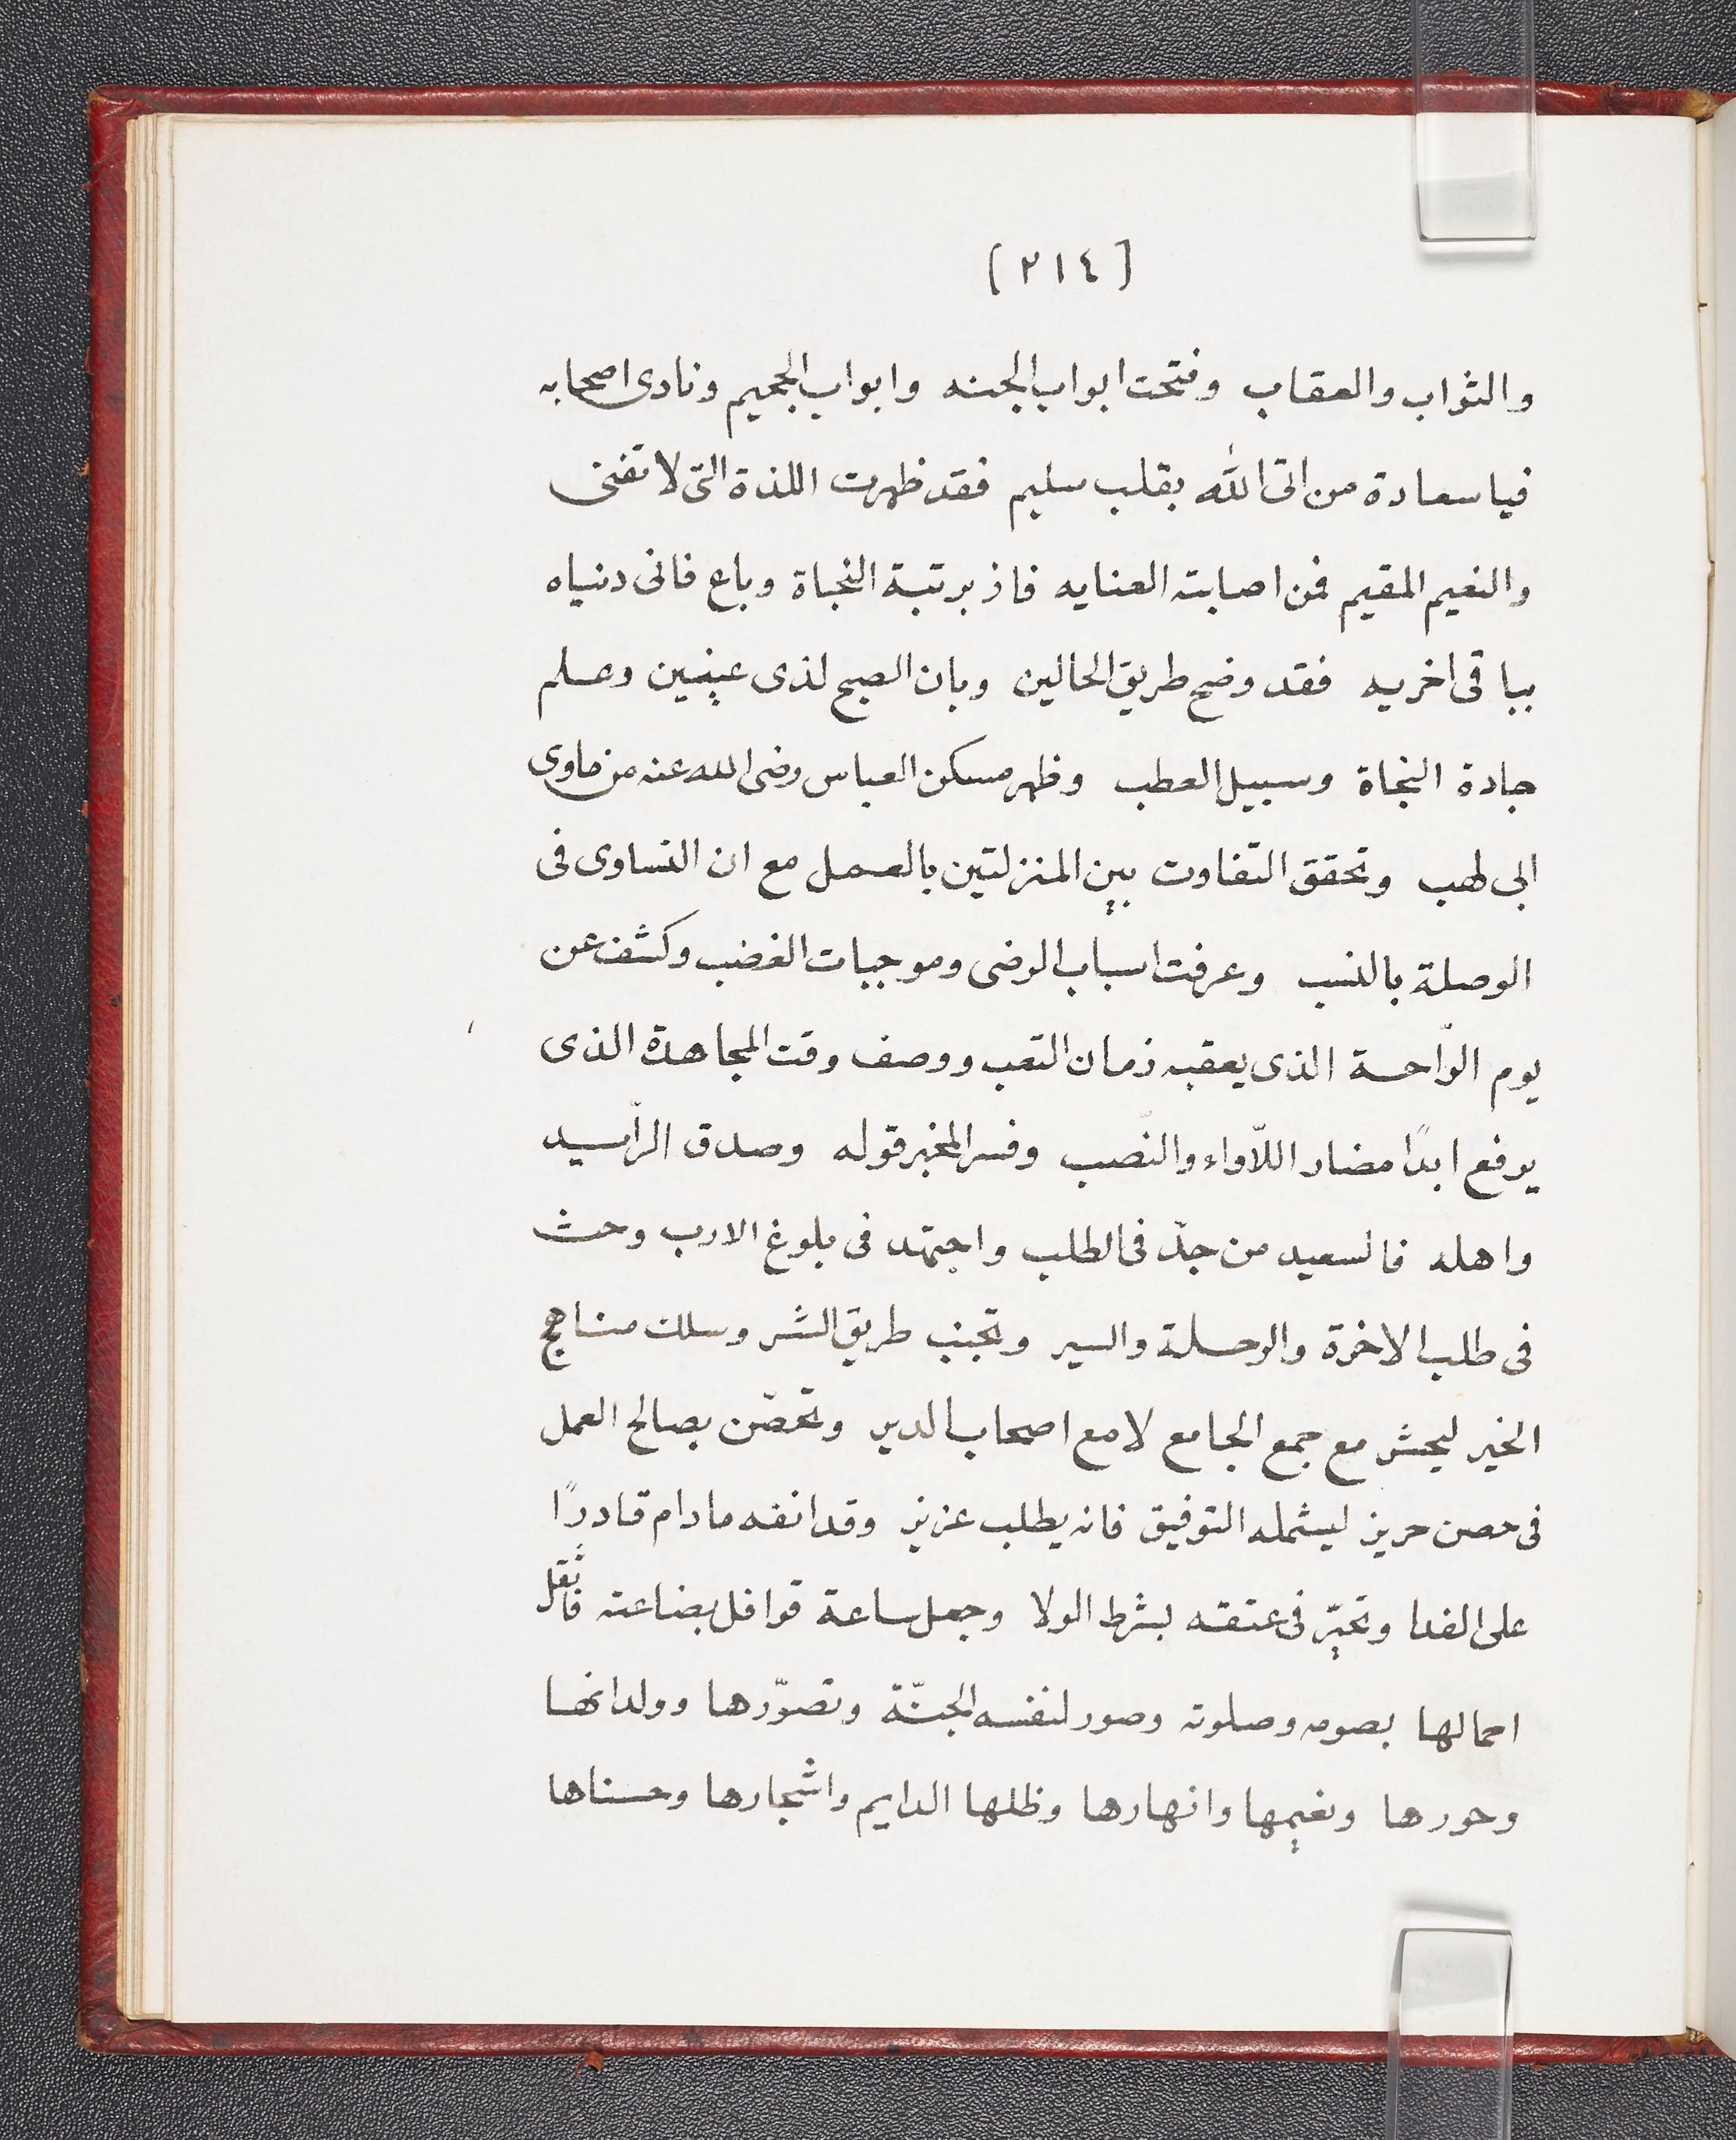 [٢١٤]
والثواب والعقاب وفتحت ابواب الجنه وابواب الجحيم ونادى اصحابه
فيا سعادة من اتى الله بقلب سليم فقد ظهرت اللذة التى لا تفنى
والنعيم المقيم فمن اصابته العنايه فاز برتبة النجاة وباع فانى دنياه
بباقى اخريه فقد وضح طريق الحالين وبان الصبح لذى عينين وعلم
جادة النجاة وسبيل العطب وظهر مسكن العباس رضى الله عنه من ماوى
ابى لهب وتحقق التفاوت بين المنزلتين بالعمل مع ان التساوى فى
الوصلة بالنسب وعرفت اسباب الرضى وموجبات الغضب وكشف عن
يوم الرّاحة الذى يعقبه زمان التعب ووصف وقت المجاهدة الذى
يرفع ابدًا مضار اللّاواء والنّصب وفسر المخبر قوله وصدق الرّاسيد
واهله فالسعيد من جدّ فى الطلب واجتهد فى بلوغ الارب وحث
فى طلب الاخرة والرحلة والسير وتجنب طريق الشر وسلك مناهج
الخير ليحشر مع جمع الجامع لا مع اصحاب الدير وتحصّن بصالح العمل
فى حصن حريز ليشمله التوفيق فانه يطلب عزيز وقد انفه مادام قادرًا
على الفدا وتحيّر فى عتقه بشرط الولا وجعل ساعة قوافل بضاعته فاثقل
احمالها بصومه وصلوته وصور لنفسه الجنّة وتصوّرها وولدانها
وحورها ونعيمها وانهارها وظلها الدايم واشجارها وحسناها